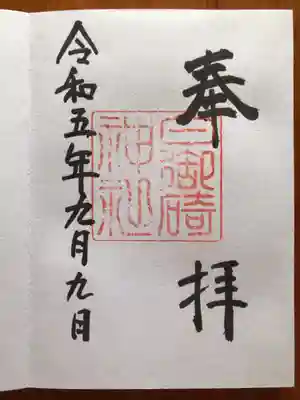 奉拝
三御碕
神社
令和五年九月九日